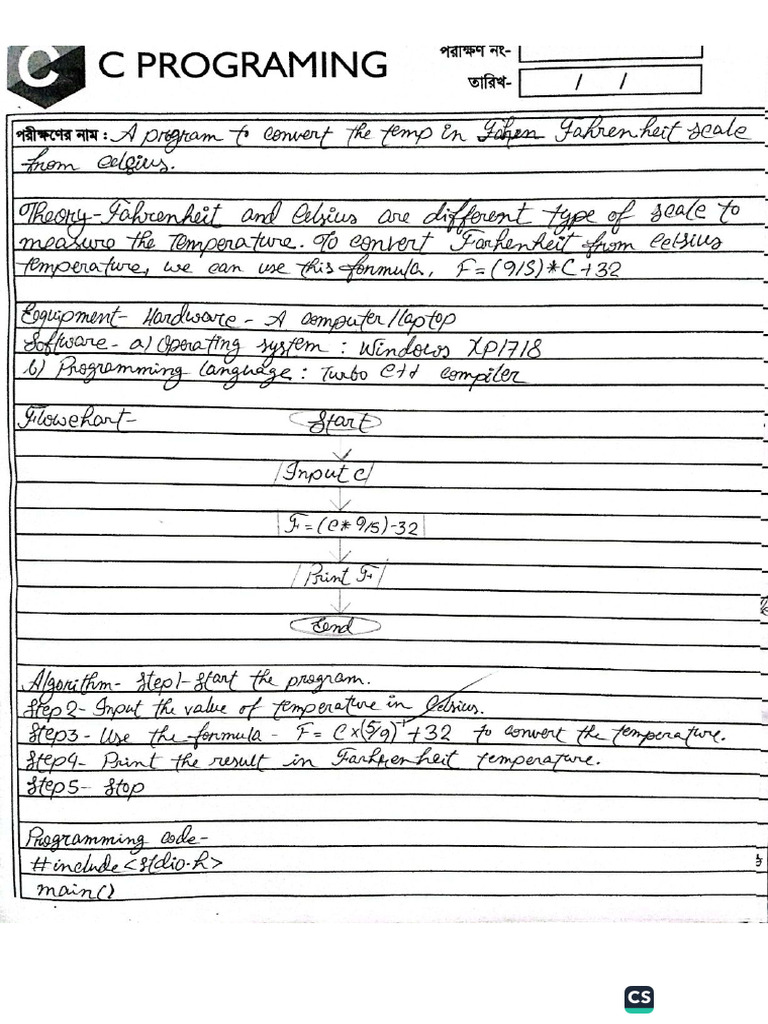 C PROGRAMING
পরীক্ষণ নং-
তারিখ- / /
পরীক্ষণের নাম : A program to convert the temp in Fahrenheit scale
from celsius.
Theory - Fahrenheit and Celsius are different type of scale to
measure the temperature. To convert Farhenheit from Celsius
temperature, we can use this formula, F = (9/5)*C+32
Eqquipment- Hardware - A computer/laptop
Software - a) Operating system : Windows XP/7/8
b) Programming language : Turbo C++ compiler
Flowchart- Start
Input C
F = (C* 9/5)-32
Print F
End
Algorithm- Step1-Start the program.
Step2- Input the value of temperature in Celsius.
Step3- Use the formula - F = C×(5/9)⁻¹+32 to convert the temperature.
Step4- Print the result in Farhrenheit temperature.
Step5- Stop
Programming code-
#include<stdio.h>
main()
CS